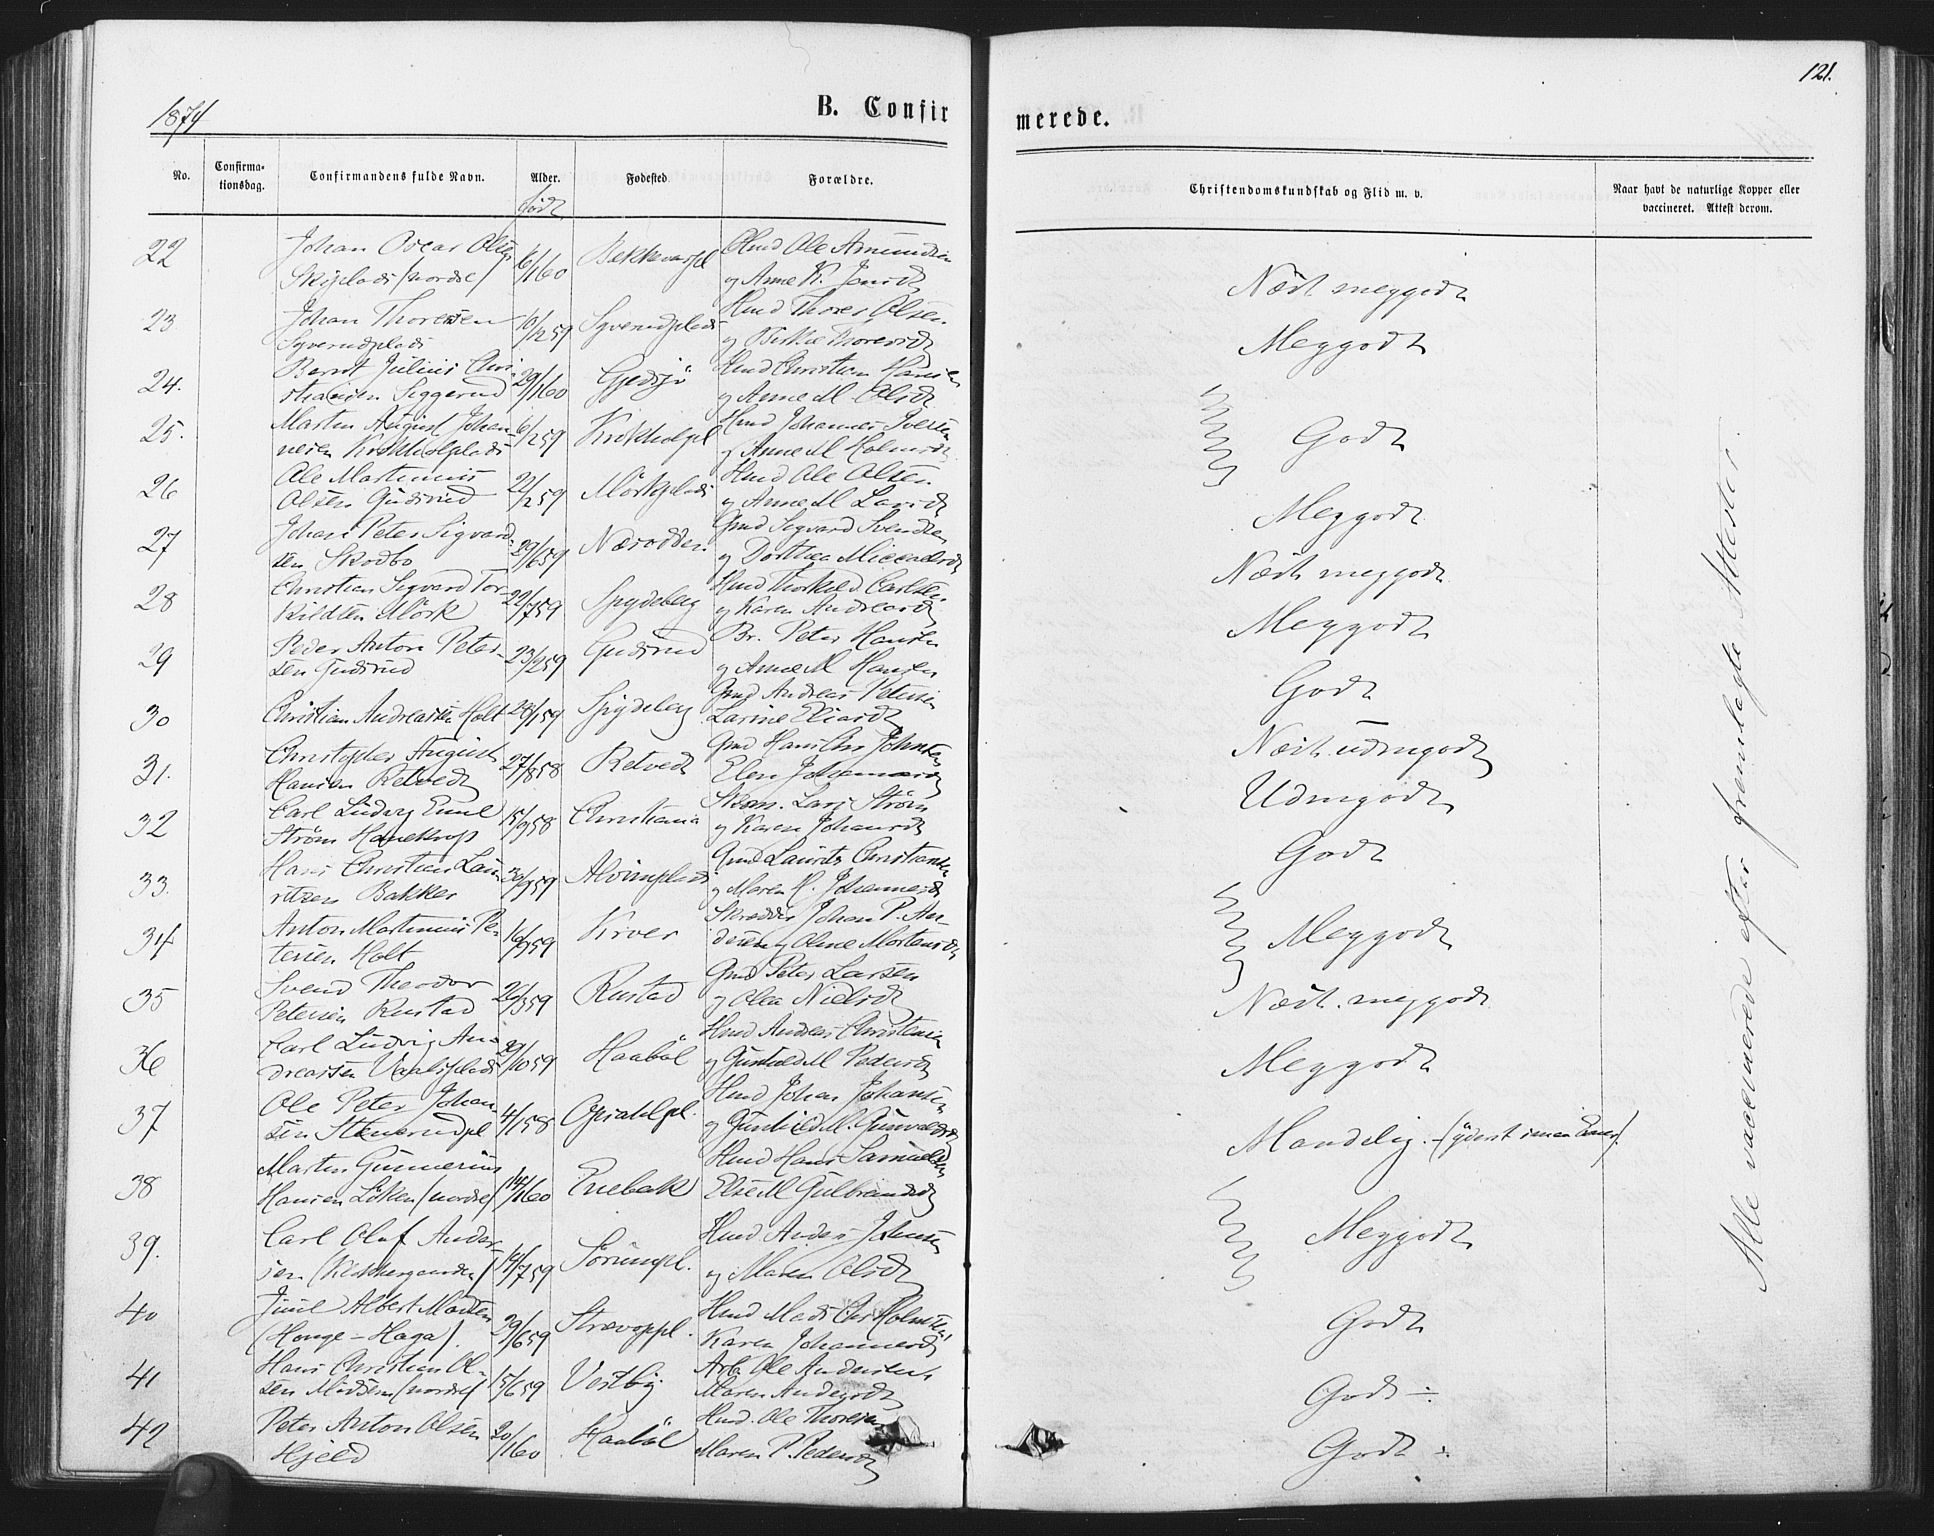 1874
B. Confir
merede.
121.
No.
Confirma-
tionsdag.
Confirmandens fulde Navn.
Alder.
født
Fødested.
Forældre.
Christendomskundskab og Flid m. v.
Naar havt de naturlige Kopper eller
vaccineret. Attest derom.
22
Johan Oscar Olsen
Skiplads (nordre)
6/1 60
Bækkevarpl
Hmd Ole Amundsen
og Anne K. Jensd
Næst meggodt
23
Johan Thoresen
Syverudplads
10/12 59
Syverudplads
Hmd Thores Olsen
og Thoresd
Meggodt
24.
Bernt Julius Chri-
stiansen Siggerud
29/1 60
Gjedsjö
Hmd Christian Hansen
og Anne M. Olsd
25.
Martin August Johan-
nesen Krokholplads
6/2 59
Krokholpl
Hmd Johannes Iversen
og Anne M Holmsd
Godt
26
Ole Martinius
Olsen Gudsrud
22/2 59
Mörkplads
Hmd Ole Olsen
og Anne M Larsd
Meggodt
27
Johan Peter Sigvard-
sen Skodbo
29/6 59
Næsodden.
Gmd Sigvard Svendsen
og Dorthea
Næst meggodt
28
Christian Sigvard Tor-
kildsen Mörk
22/7 59
Spydeberg
Hmd Thorkild Carlsen
og Karen Andreasd
Meggodt
29
Peder Anton Peter-
sen Gudsrud
23/2 59
Gudsrud
Br. Peter Hansen
og Anne M Hansen
Godt
30
Christian Andreassen Holt
28/1 59
Spydeberg
Gmd Andreas Petersen
Larine Eliasd
Næst udmgodt
31.
Christopher August
Hansen Retvedt
27/8 58
Retvedt
Gmd Hans Chr Johnsen
Elen Johannesd
Udmgodt
32
Carl Ludvig Emil
Strøm Hanekrop
15/9 58
Christiania
Lars Strøm
og Karen Johansd
Godt
33.
Hans Christian Lau-
ritzen Bakker
59
Alvimplads
Gmd Laurits Christiansen
og Maren H. Johannesd
34
Anton Martinius Pe-
tersen Holt
59
Kirver
Skrædder Johan P. An-
dersen og Oline Mortensd
Meggodt
35
Svend Theodor
Petersen Rustad
26/3 59
Rustad
Gmd Peter Larsen
og Olea Nielsd
Næst. meggodt
36
Carl Ludvig An-
dreassen Vaalsplads
29/10 59
Haaböl
Hmd Andreas Christensen
og Gunhild M Pedersd
Meggodt
37
Ole Peter Johan-
sen Stenerudpl
4/1 58
Opsahlpl.
Hmd Johan Johansen
og Gunhild M. Gunvaldsd
Maadelig.
38
Martin Gunnerius
Hansen Löken (nordre)
14/1 60
Enebak
Hmd Hans Samuelsen
Else M Gulbrandsd
39.
Carl Olaf Ander-
sen (Klokkergaarden)
14/7 59
Sörumpl.
Hmd Anders Johnsen
og Maren Olsd
Meggodt
40
Juul Albert Madsen
(Houge-Haga).
29/6 59
Hmd Mads Chr Holmsen
Karen Johannesd
Godt
41
Hans Christian Ol-
sen Midsem (nordre)
15/6 59
Vestby
Arb. Ole Andersen
Maren Andersd
Godt ÷
42
Peter Anton Olsen
Hjeld
20/1 60
Haaböl
Hmd. Ole Thoresen
Maren P. Pedersd
Godt ÷
Alle vaccinerede efter fremlagte Attester.